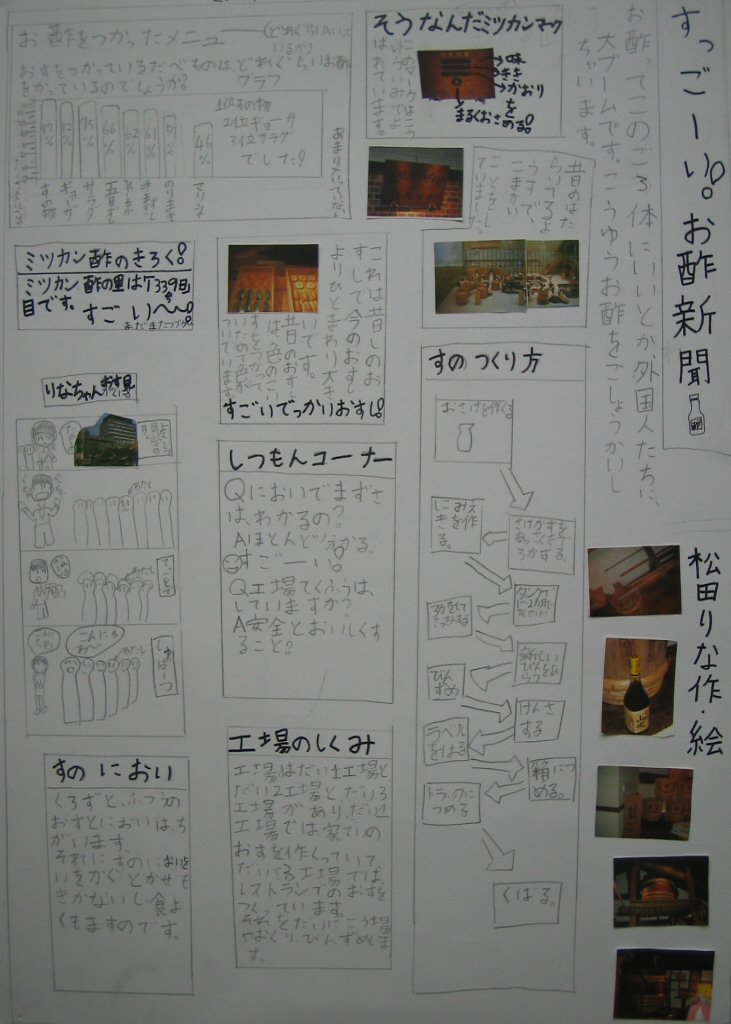 すっごーい!お酢新聞
お酢ってこのごろ体にいいとか、外国人たちに、
大ブームです。こうゆうお酢をごしょうかいし
ちゃいます。
松田りな作・絵
そうなんだミツカンマーク
→味
→きき
→かおり
を
まるくおさめる!
このマークはこ
ういういみでよ
ばれています。
昔のはた
らいてるよ
うすで、
こまかい
ことをし
ていました。
お酢をつかったメニュー
おすをつかっているたべものは、どれぐらいお酢
をかっているのでしょうか?
グラフ
1位すの物
2位ギョーザ
3位サラダ
でした!
あまりはいっていない
75%
66%
62%
61%
46%
すの物
ギョーザ
サラダ
五目すし
のりまき
マリネ
ミツカン酢のきろく!
ミツカン酢の里は今339日
目です。すごい〜!
まだまだつづく
これは昔しのお
すしで今のおすし
よりひとまわり大き
いです。
昔日のおす
は色のこい
すをつかって
いたので色が
ついています
すごいでっかりおすし!
すのつくり方
おさけを作くる
さけかすを
あっさくきで
ろかする。
しこみえ
きを作
る。
タンクで
1〜2カ月
新しい
びんをあ
らう
びん
ずめ
けんさ
する
ラベル
をはる
箱につ
める。
トラックに
つめる
くばる。
りなちゃんおす見学
わたし
てっとて
わたし
しゅぱーつ
こんにち
わ〜
わたし
しつもんコーナー
Qにおいでまずさ
は、わかるの?
Aほとんどわかる。
すごーい!
Q工場でくふうは、
していますか?
A安全とおいしくす
ること!
工場のしくみ
工場はだい1工場と
だい2工場と、だい3
工場があり、だい1
工場では家ていの
おすを作くっていて
だい3工場では、
レストランでのおすを
つくっています。
それをだい2こう場
やおくり、びんずめしま
す。
すのにおい
くろずと、ふつうの
おすとにおいはち
がいます。
それにすのにおいをい
いをかぐとかぜも
きかないし食よ
くもますのです。